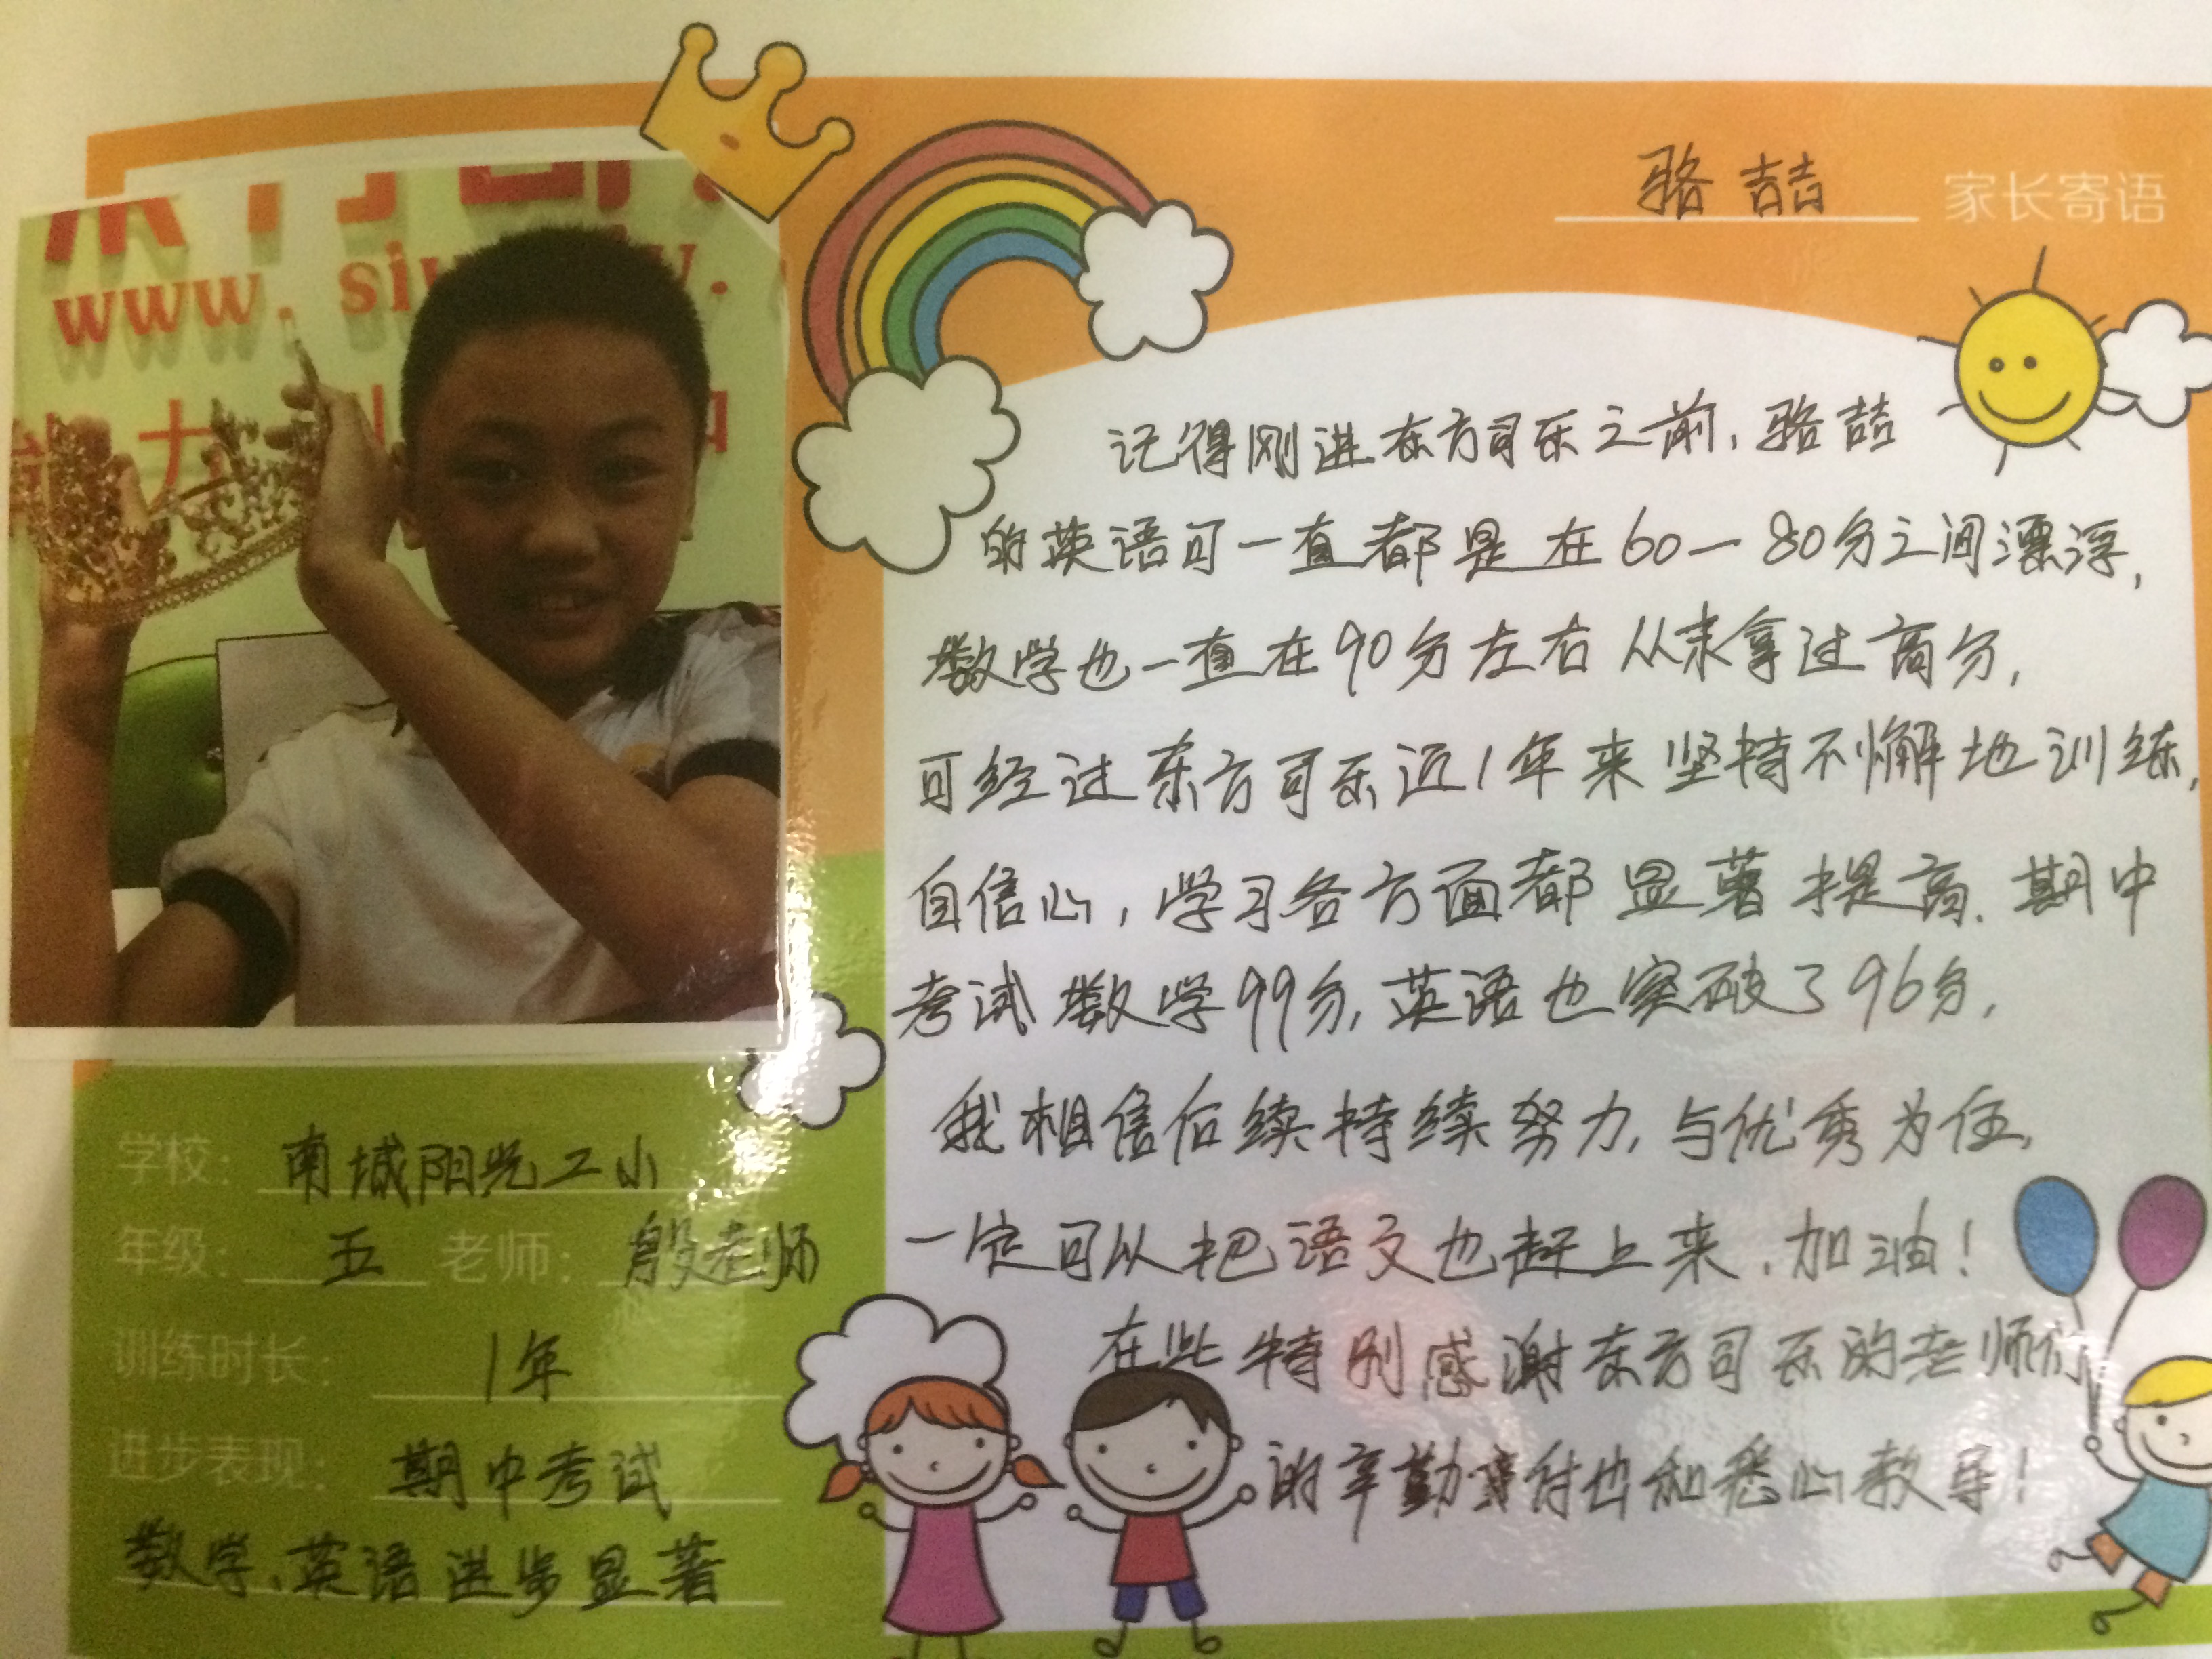 骆喆 家长寄语
www. si
力
记得刚进东方司乐之前，骆喆
的英语可一直都是在60一80分之间漂浮，
数学也一直在90分左右从未拿过高分，
可经过东方司乐近1年来坚持不懈地训练，
自信心，学习各方面都显著提高．期中
考试数学99分，英语也突破了96分，
我相信后续持续努力，与优秀为伍，
一定可以把语文也赶上来．加油！
在此特别感谢东方司乐的老师们
的辛勤付出和悉心教导！
学校：南城阳光二小
年级：五 老师：殷老师
训练时长：1年
进步表现：期中考试
数学、英语进步显著